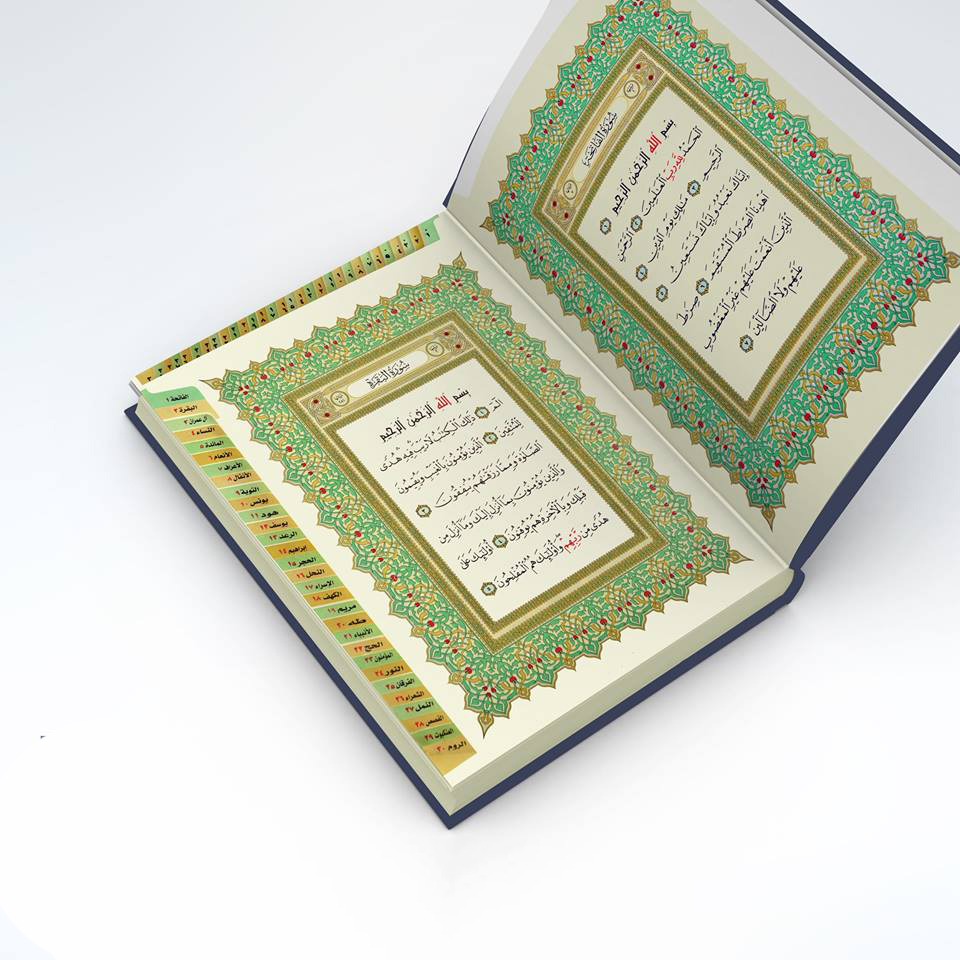 سُورَةُ الفَاتِحَةِ
بِسْمِ ٱللَّهِ ٱلرَّحْمَٰنِ ٱلرَّحِيمِ ١
ٱلْحَمْدُ لِلَّهِ رَبِّ ٱلْعَٰلَمِينَ ٢ ٱلرَّحْمَٰنِ
ٱلرَّحِيمِ ٣ مَٰلِكِ يَوْمِ ٱلدِّينِ ٤
إِيَّاكَ نَعْبُدُ وَإِيَّاكَ نَسْتَعِينُ ٥
ٱهْدِنَا ٱلصِّرَٰطَ ٱلْمُسْتَقِيمَ ٦ صِرَٰطَ
ٱلَّذِينَ أَنْعَمْتَ عَلَيْهِمْ غَيْرِ ٱلْمَغْضُوبِ
عَلَيْهِمْ وَلَا ٱلضَّآلِّينَ ٧
سُورَةُ البَقَرَةِ
بِسْمِ ٱللَّهِ ٱلرَّحْمَٰنِ ٱلرَّحِيمِ
الٓمٓ ١ ذَٰلِكَ ٱلْكِتَٰبُ لَا رَيْبَ فِيهِ هُدًى
لِّلْمُتَّقِينَ ٢ ٱلَّذِينَ يُؤْمِنُونَ بِٱلْغَيْبِ وَيُقِيمُونَ
ٱلصَّلَوٰةَ وَمِمَّا رَزَقْنَٰهُمْ يُنفِقُونَ ٣
وَٱلَّذِينَ يُؤْمِنُونَ بِمَآ أُنزِلَ إِلَيْكَ وَمَآ أُنزِلَ مِن
قَبْلِكَ وَبِٱلْءَاخِرَةِ هُمْ يُوقِنُونَ ٤ أُو۟لَٰٓئِكَ عَلَىٰ
هُدًى مِّن رَّبِّهِمْ وَأُو۟لَٰٓئِكَ هُمُ ٱلْمُفْلِحُونَ ٥
الفاتحة ١
البقرة ٢
آل عمران ٣
النساء ٤
المائدة ٥
الأنعام ٦
الأعراف ٧
الأنفال ٨
التوبة ٩
يونس ١٠
هود ١١
يوسف ١٢
الرعد ١٣
إبراهيم ١٤
الحجر ١٥
النحل ١٦
الإسراء ١٧
الكهف ١٨
مريم ١٩
طه ٢٠
الأنبياء ٢١
الحج ٢٢
المؤمنون ٢٣
النور ٢٤
الفرقان ٢٥
الشعراء ٢٦
النمل ٢٧
القصص ٢٨
العنكبوت ٢٩
الروم ٣٠